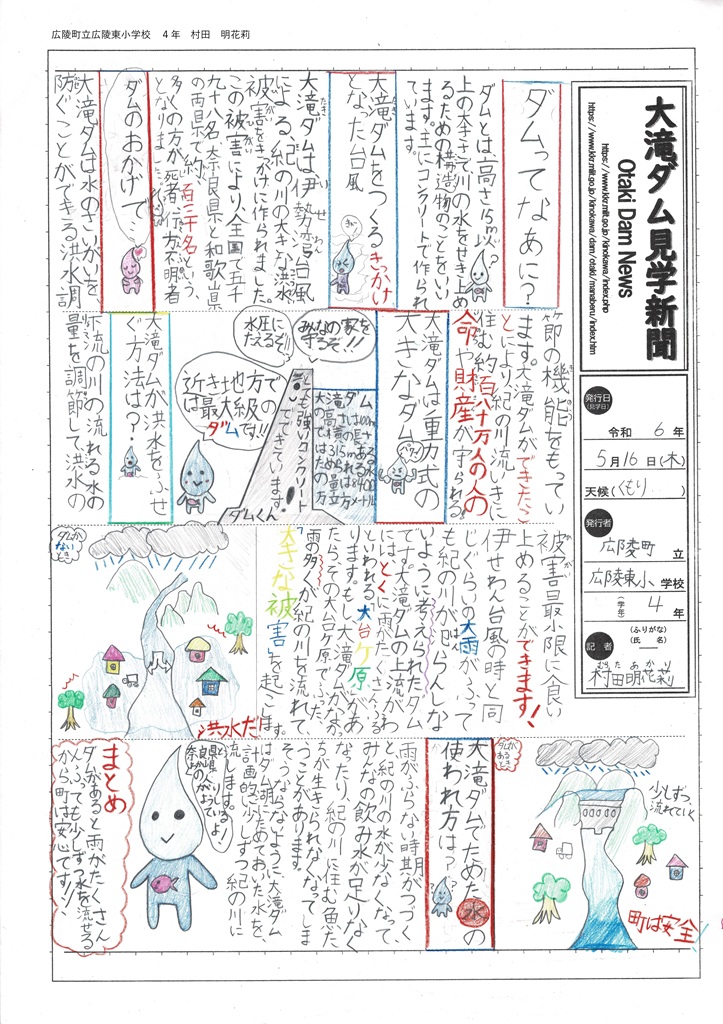 広陵町立広陵東小学校　4年　村田　明花莉
大滝ダム見学新聞
Otaki Dam News
https://www.kkr.mlit.go.jp/kinokawa/index.php
https://www.kkr.mlit.go.jp/kinokawa/dam/otaki/manaberu/index.htm
発行日
(見学日)
令和 6 年
5月16日(木)
天候(くもり)
発行者
広陵町 立
広陵東小 学校
(学年) 4 年
記者
(ふりがな)
(氏名)
むらた あかり
村田明花莉
ダムってなあに?
ダムとは、高さ15m以
上の大きさで川の水をせき止め
るための構造物のことをいい
ます。主にコンクリートで作られ
ています。
大滝ダムをつくるきっかけ
となった台風
大滝ダムは、伊勢湾台風
による、紀の川の大きな洪水
被害をきっかけに作られました。
この被害により、全国で五千
九十八名、奈良県と和歌山県
の両県で約、百二十名という、
多くの方が死者・行方不明者
となりました。
ダムのおかげで…
大滝ダムは水のさいがいを
防ぐことができる洪水調
節の機能をもってい
ます。大滝ダムができたこ
とにより、紀の川流いきに
住む約百八十万人の人の
命や財産が守られる。
大滝ダムは重力式の
大きなダム
みんなの家を
守るぞ!!
水圧に
たえるぞ!!
とても強いコンクリート
でできています!
ダムくん
近き地方での
は最大級です!!
ダム
大滝ダムが洪水をふせ
ぐ方法は?
下流の川の流れる水の
量を調節して洪水の
被害最小限に食い
止めることができます!
伊せわん台風の時と同
じぐらいの大雨がふって
も紀の川がはんらんしな
いように考えられたダム
です。大滝ダムの上流がわ
はとくに雨がたくさんふる
といわれる「大台ケ原」があ
ります。もし、大滝ダムがなかっ
たらこの大台ケ原でふった、
雨の多くが紀の川を流れて、
「大きな被害」を起こす。
ダムが
ないとき
洪水だ!
ダムが
あるとき
少しずつ
流れていく
町は安全
大滝ダムでためた水の
使われ方は?
雨がふらない時期がつづく
と紀の川の水が少なくなって、
みんなの飲み水が足りなく
なったり、紀の川に住む魚た
ちが生きられなくなってしま
うことがあります。
そうならないように、大滝ダム
はダム湖にためておいた水を、
計画的に少しずつ紀の川に
流します。
まとめ
ダムがあると雨がたくさん
ふっても少しずつ水を流せる
から、町は安心です!!